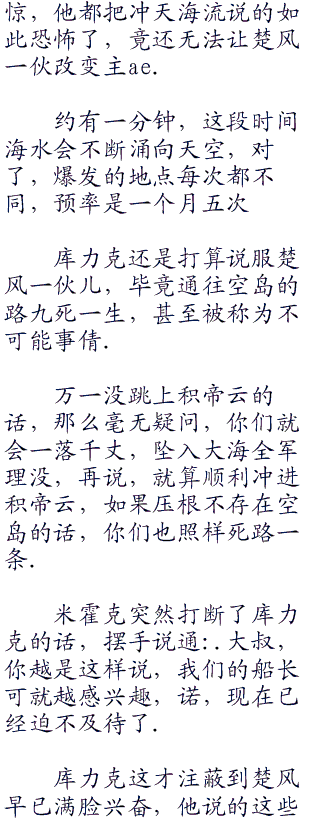 惊，他都把冲天海流说的如
此恐怖了，竟还无法让楚风
一伙改变主ae.
约有一分钟，这段时间
海水会不断涌向天空，对
了，爆发的地点每次都不
同，预率是一个月五次
库力克还是打算说服楚
风一伙儿，毕竟通往空岛的
路九死一生，甚至被称为不
可能事倩.
万一没跳上积帝云的
话，那么毫无疑问，你们就
会一落千丈，坠入大海全军
理没，再说，就算顺利冲进
积帝云，如果压根不存在空
岛的话，你们也照样死路一
条.
米霍克突然打断了库力
克的话，摆手说通:.大叔，
你越是这样说，我们的船长
可就越感兴趣，诺，现在已
经迫不及待了.
库力克这才注蔽到楚风
早已满脸兴奋，他说的这些